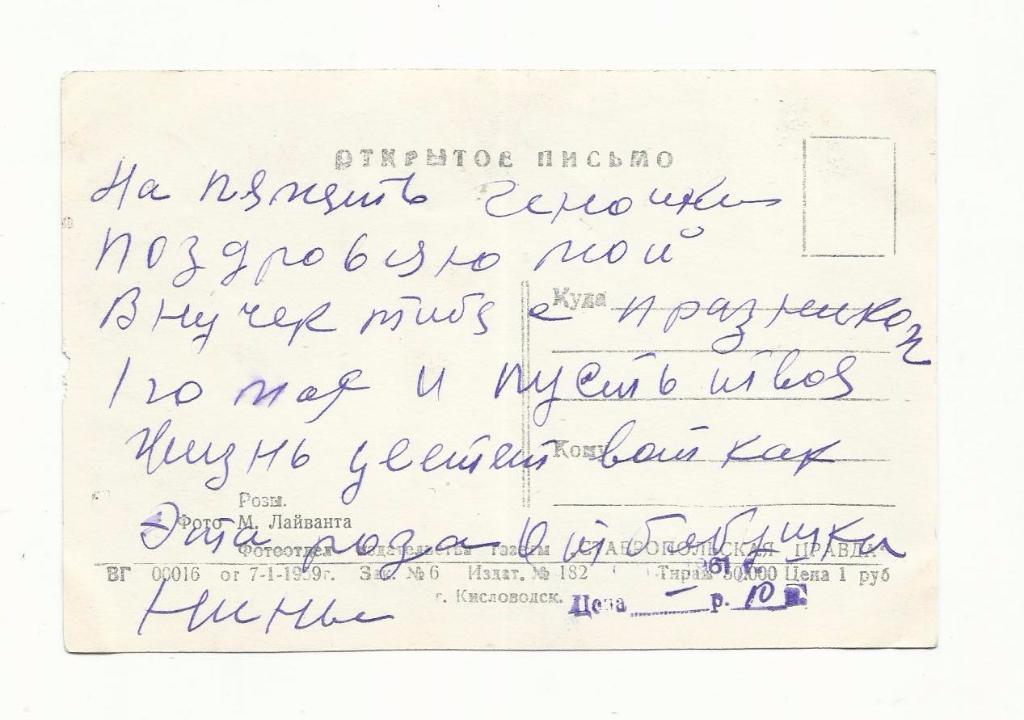 ОТКРЫТОЕ ПИСЬМО
На память Геночки
Поздровляю мой
Внучек тибя с празником
Куда
1 го мая и пусть твоя
Кому
Жизнь цветет вот как
Розы.
Фото М. Лайванта
Эта роза От бабушки
Фотоотдел издательства газеты СТАВРОПОЛЬСКАЯ ПРАВДА
ВГ 00016 от 7-1-1959г. Зак. №6 Издат. № 182 Тираж 50.000 Цена 1 руб
г. Кисловодск.
Цена — р. 10 к.
Нины